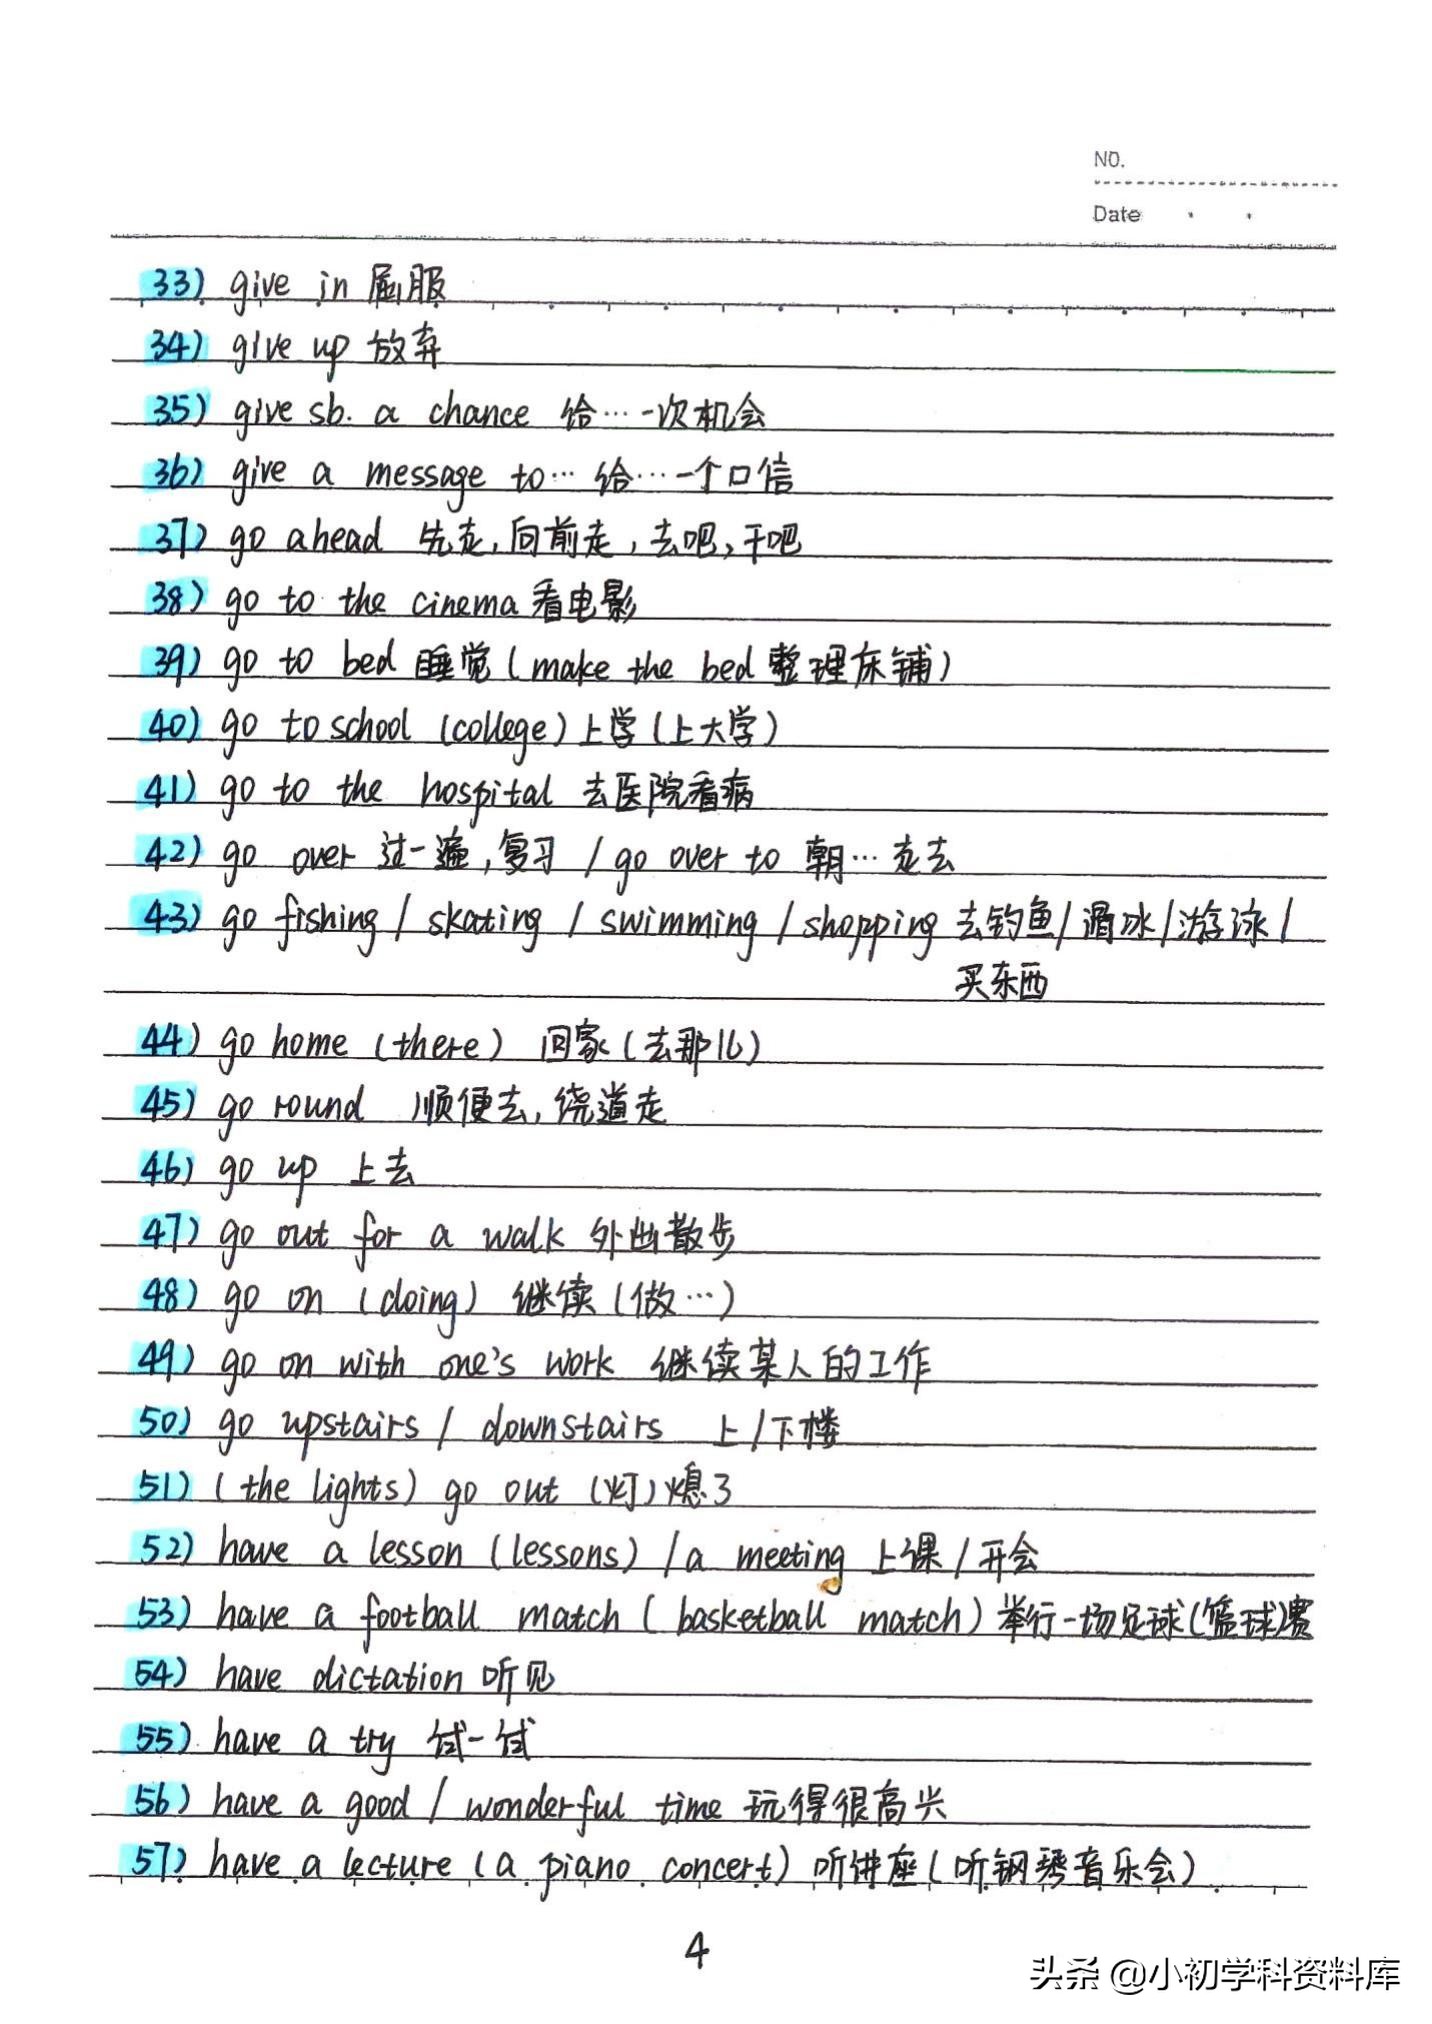 NO.
Date
33) give in 屈服
34) give up 放弃
35) give sb. a chance 给…一次机会
36) give a message to… 给…一个口信
37) go ahead 先走,向前走,去吧,干吧
38) go to the cinema 看电影
39) go to bed 睡觉(make the bed 整理床铺)
40) go to school (college) 上学(上大学)
41) go to the hospital 去医院看病
42) go over 过一遍,复习 / go over to 朝…走去
43) go fishing / skating / swimming / shopping 去钓鱼/滑冰/游泳/
买东西
44) go home (there) 回家(去那儿)
45) go round 顺便去,绕道走
46) go up 上去
47) go out for a walk 外出散步
48) go on (doing) 继续(做…)
49) go on with one's work 继续某人的工作
50) go upstairs / downstairs 上/下楼
51) (the lights) go out (灯)熄了
52) have a lesson (lessons) / a meeting 上课/开会
53) have a football match (basketball match) 举行一场足球(篮球)赛
54) have dictation 听见
55) have a try 试一试
56) have a good / wonderful time 玩得很高兴
57) have a lecture (a piano concert) 听讲座(听钢琴音乐会)
4
头条 @小初学科资料库